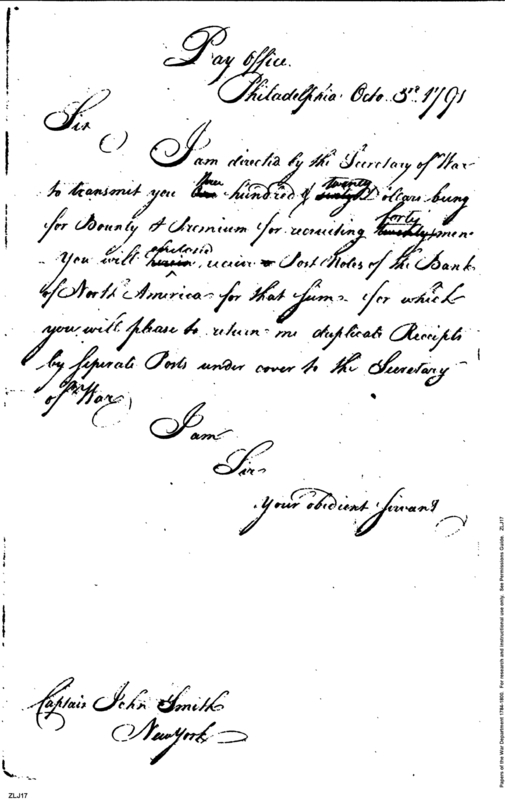 Pay Office
Philadelphia Octo. 3rd 1791
Sir
I am directed by the Secretary of War
three twenty
to transmit you hundred & Dollars being
forty
for Bounty & Premium for recruiting twenty men
enclosed
You will herein receive Post Notes of the Bank
of North America for that sum for which
you will please to return me duplicate Receipts
by seperate Posts under cover to the Secretary
of War
I am
Sir
Your obedient Servant
Captain John Smith
New York
ZLJ17
Papers of the War Department 1784-1800. For research and instructional use only. See Permissions Guide. ZLJ17